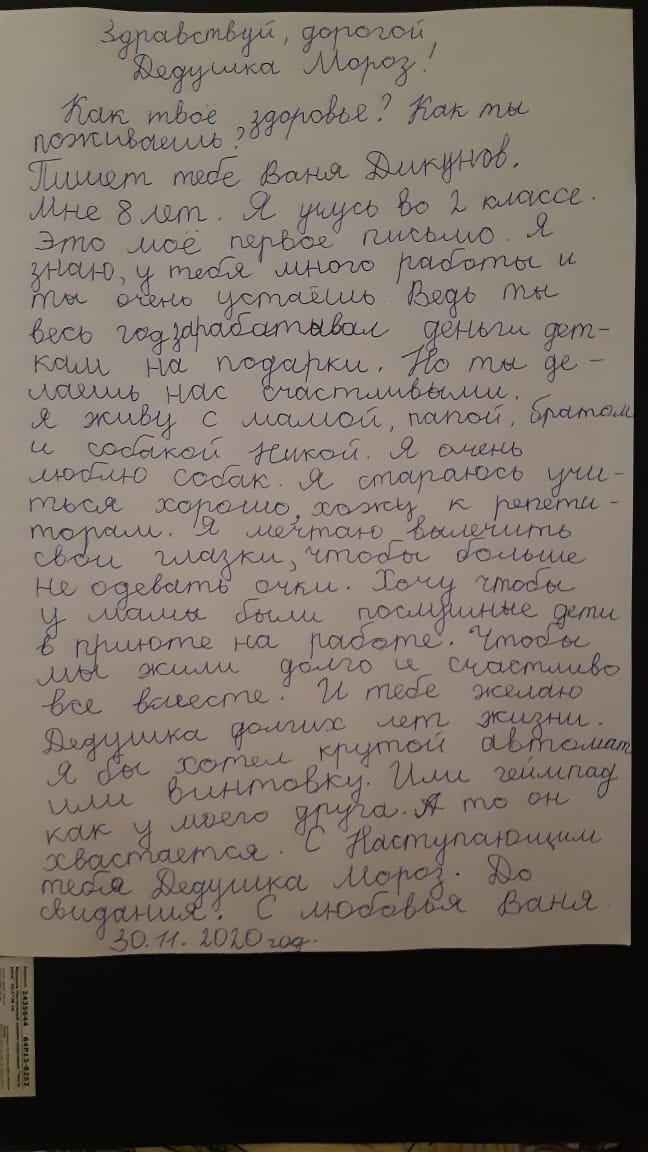 Здравствуй, дорогой
Дедушка Мороз!
Как твоё здоровье? Как ты
поживаешь?
Пишет тебе Ваня Дикунов.
Мне 8 лет. Я учусь во 2 классе.
Это моё первое письмо. Я
знаю, у тебя много работы и
ты очень устаёшь. Ведь ты
весь год зарабатывал деньги дет-
кам на подарки. Но ты де-
лаешь нас счастливыми.
Я живу с мамой, папой, братом
и собакой Никой. Я очень
люблю собак. Я стараюсь учи-
ться хорошо, хожу к репети-
торам. Я мечтаю вылечить
свои глазки, чтобы больше
не одевать очки. Хочу чтобы
у мамы были послушные дети
в приюте на работе. Чтобы
мы жили долго и счастливо
все вместе. И тебе желаю
Дедушка долгих лет жизни.
Я бы хотел крутой автомат
или винтовку. Или геймпад
как у моего друга. А то он
хвастается. С Наступающим
тебя Дедушка Мороз. До
свидания. С любовья Ваня
30.11. 2020 год.
2435644 64Р13-8252